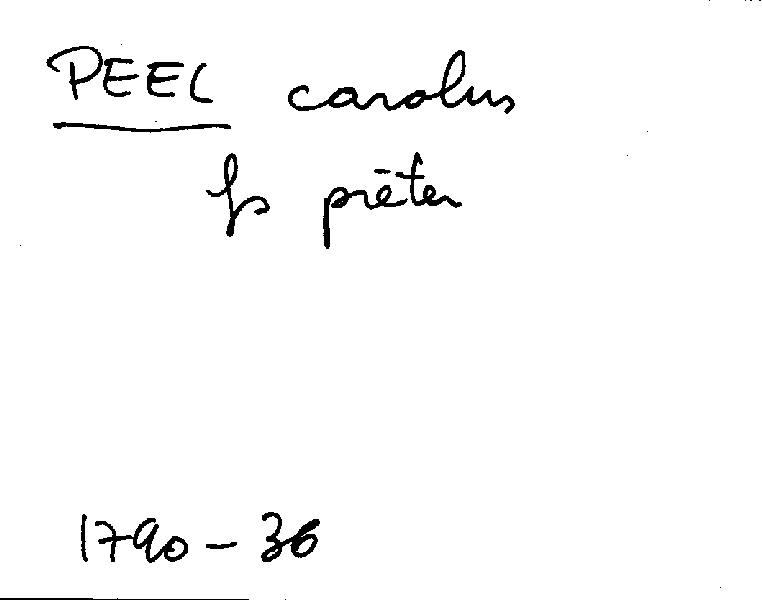 PEEL carolus
fs prēter
1790 - 36